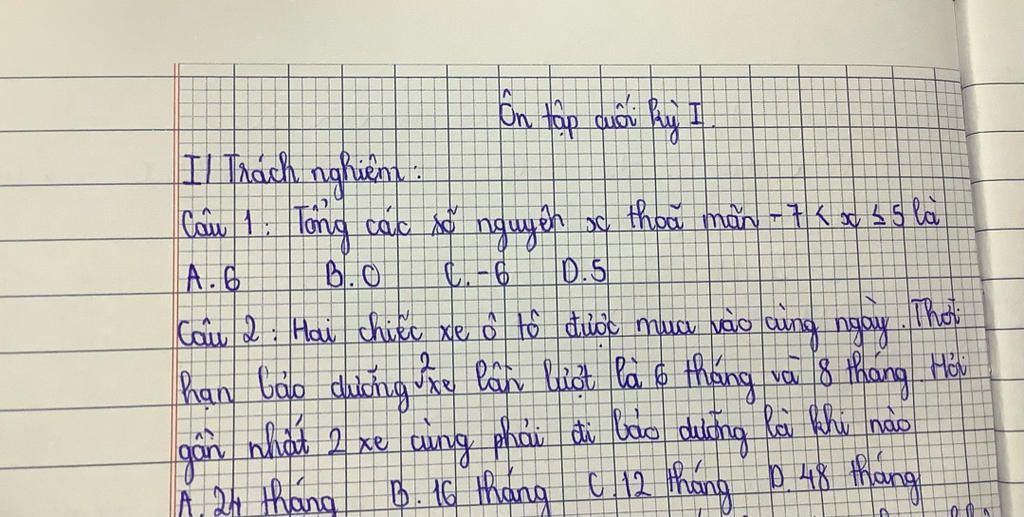 Ôn tập cuối kỳ I.
I/ Trách nghiêm:
Câu 1: Tổng các số nguyên x thoã mãn -7 < x ≤ 5 là
A. 6 B. 0 C. -6 D. 5
Câu 2: Hai chiếc xe ô tô được mua vào cùng ngày. Thời
hạn bảo dưỡng 2 xe lần lượt là 6 tháng và 8 tháng. Hỏi
gần nhất 2 xe cùng phải đi bảo dưỡng là khi nào
A. 24 tháng B. 16 tháng C. 12 tháng D. 48 tháng